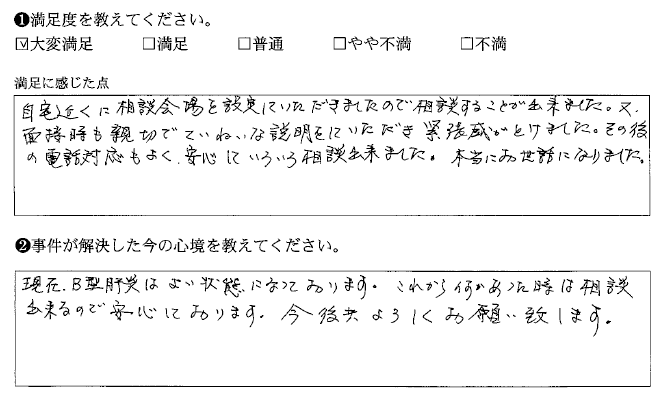 ❶満足度を教えてください。
☑大変満足 □満足 □普通 □やや不満 □不満
満足に感じた点
自宅近くに相談会場を設定していただきましたので相談することが出来ました。又、
面接時も親切でていねいな説明をしていただき緊張感がとけました。その後
の電話対応もよく、安心していろいろ相談出来ました。本当にお世話になりました。
❷事件が解決した今の心境を教えてください。
現在、B型肝炎はよい状態になっております。これから何かあった時は相談
出来るので安心しております。今後共よろしくお願い致します。